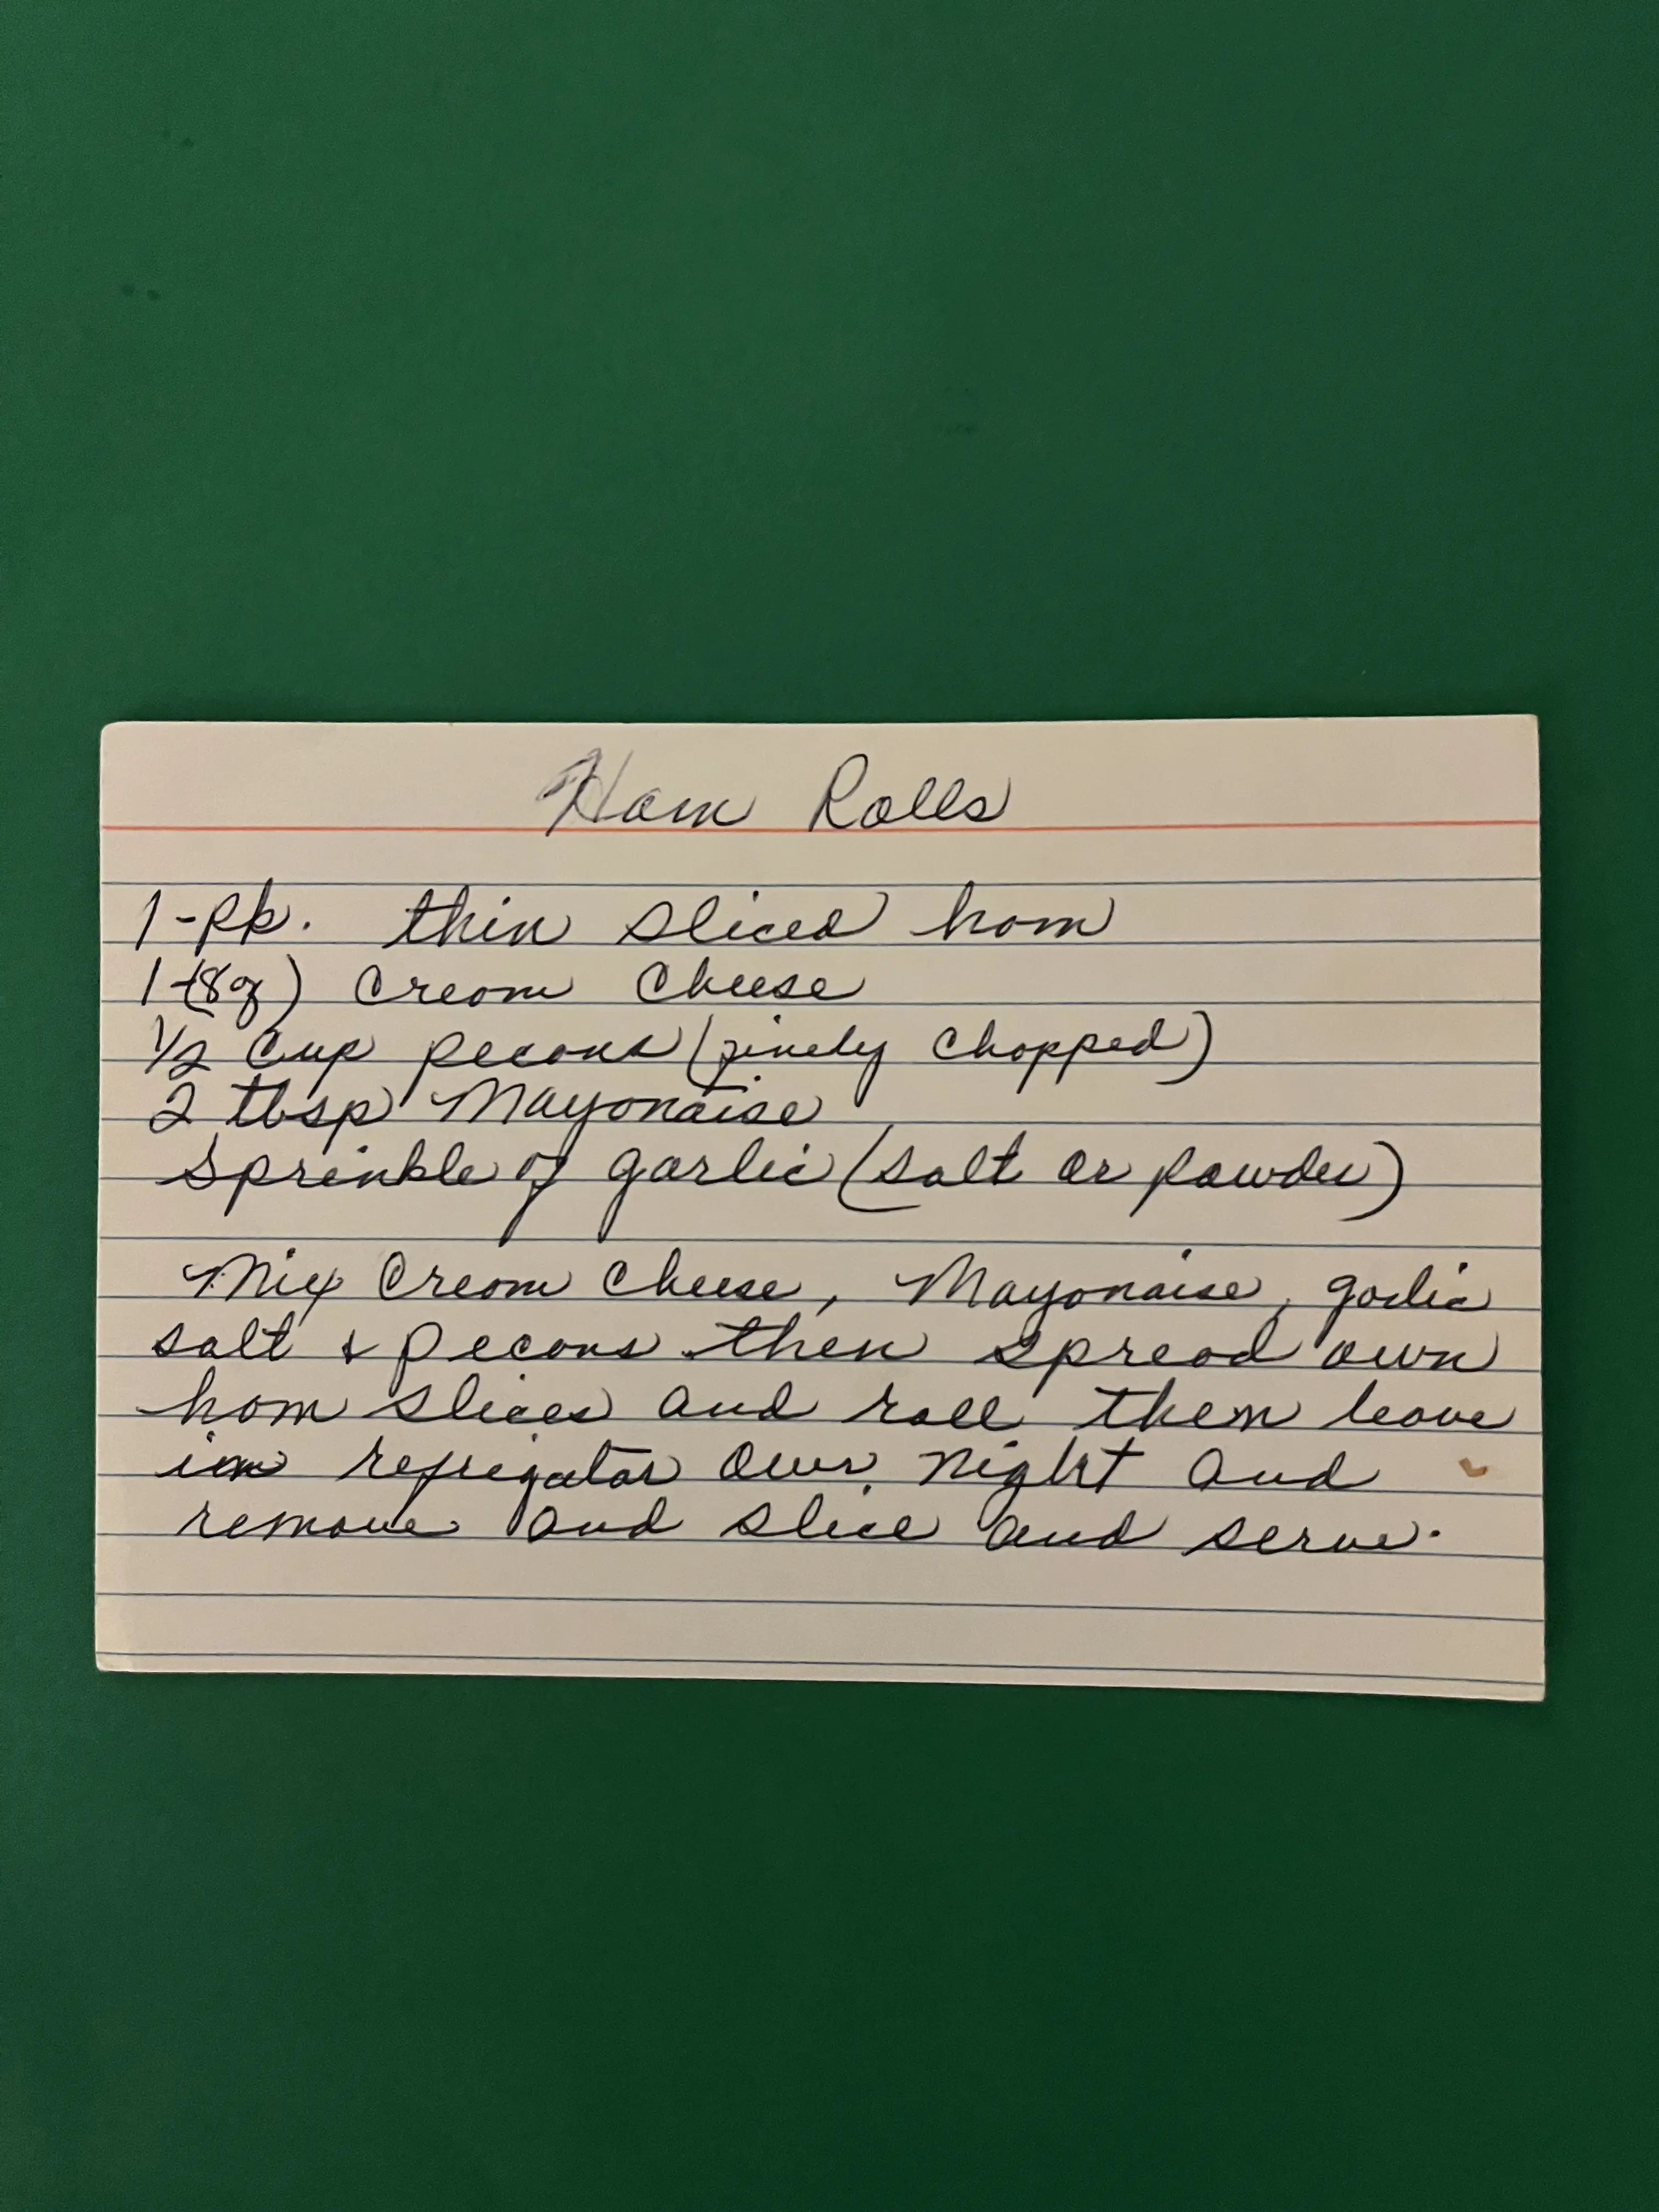 Ham Rolls
1-pk. thin sliced ham
1-(8oz) cream cheese
1/2 cup pecans (finely chopped)
2 tbsp Mayonaise
sprinkle of garlic (salt or powder)
Mix cream cheese, Mayonaise, garlic
salt & pecans then spread own
ham slices and roll them leave
in refrigator over night and
remove and slice and serve.